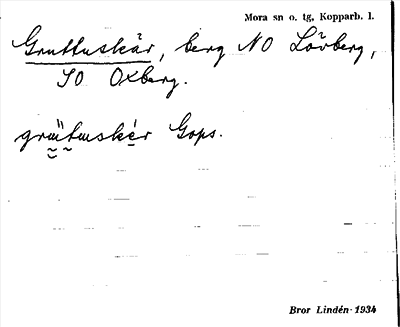 Mora sn o. tg, Kopparb. l.
Gruttuskär, berg NO Lövberg,
SO Oxberg.
grüt̬uskér Gops.
Bror Lindén 1934